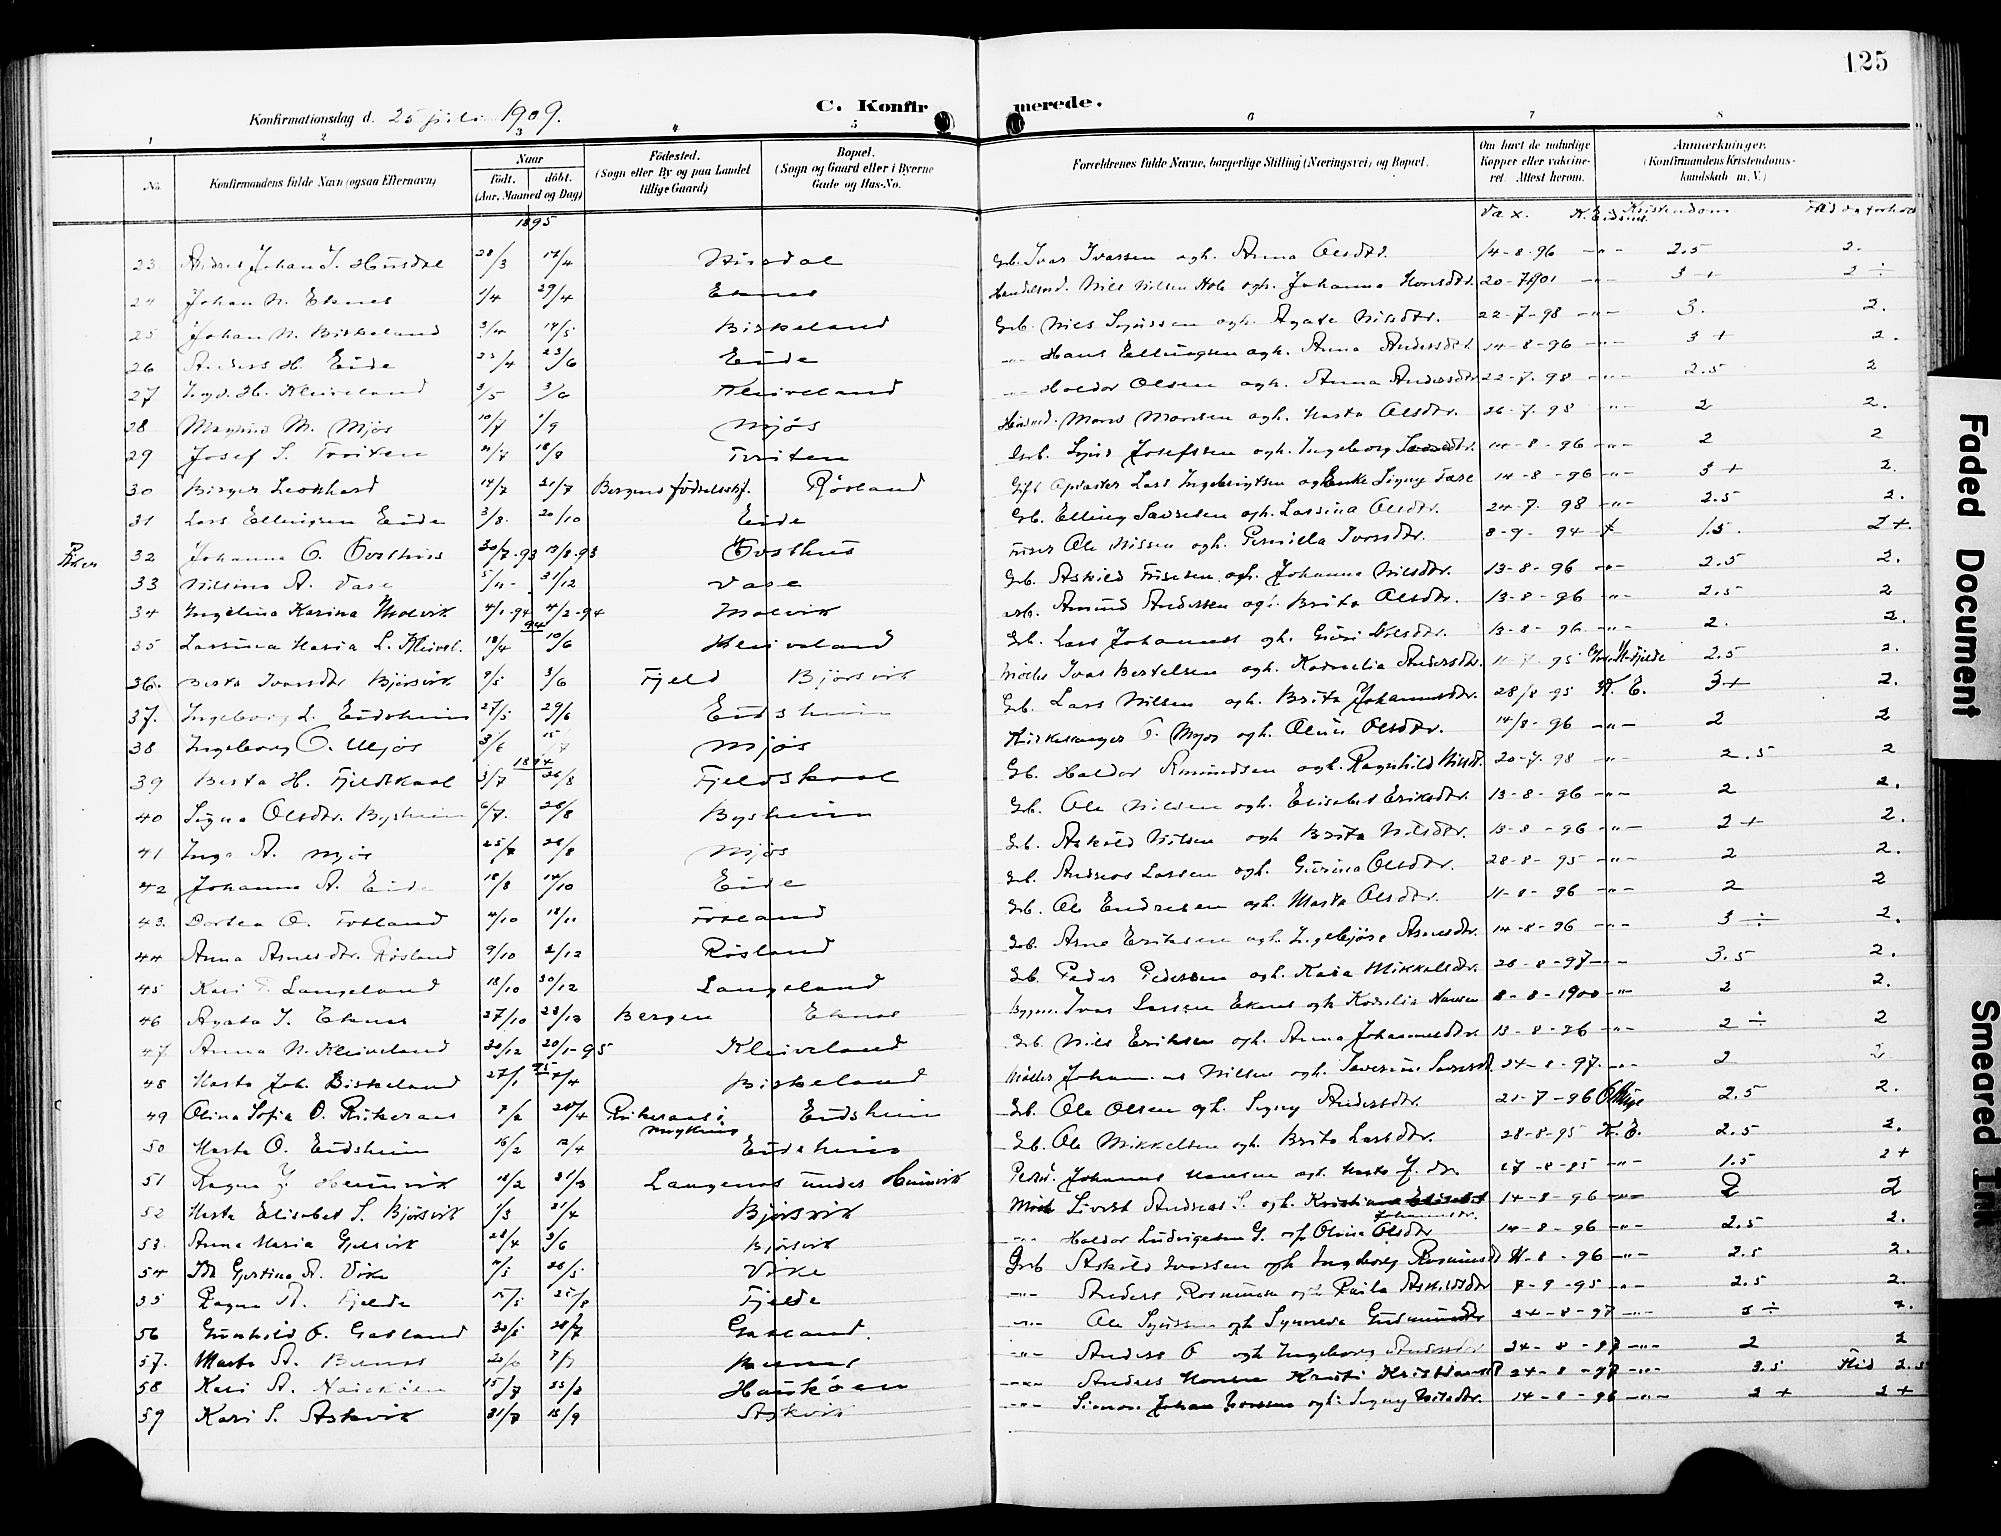 125
C. Konfirmerede.
Konfirmationsdag d. 25 juli 1909.
1 2 3 4 5 6 7 8
No. Konfirmandens fulde Navn (ogsaa Efternavn) Naar Födt. döbt. (Aar, Maaned og Dag) Födested. (Sogn eller By og paa Landet tillige Gaard) Bopæl. (Sogn og Gaard eller i Byerne Gade og Hus-No. Forældrenes fulde Navne, borgerlige Stilling (Næringsvei) og Bopæl. Om havt de naturlige Kopper eller vaccineret. Attest herom. Anmærkninger. (Konfirmandens Kristendomskundskab m. V.)
1895 Vax. Kristendom Flid og forhold
23 Anders Johan I. Husdal 28/3 17/4 Husdal Grb. Ivar Ivarsen ogh. Anna Olsdtr. 14-8-96 -"- 2.5 2.
24 Johan N. Eknes 1/4 29/4 Eknes Handelsmd. Nils Nilsen Hole ogh. Johanna Monsdtr. 20-7-1901 -"- 3+ 2÷
25 Johan N. Birkeland 3/4 14/5 Birkeland Grb. Nils Sjursen ogh. Agate Nilsdtr. 22-7-98 -"- 3. 2.
26 Anders H. Eide 23/4 23/6 Eide -"- Hans Ellingsen ogh. Anna Andersdtr. 14-8-96 -"- 3+ 2.
27 H. Kleiveland 3/5 3/6 Kleiveland -"- Haldor Olsen ogh. Anna Andersdtr. 22-7-98 -"- 2.5 2
28 Magnus M. Mjøs 10/7 1/9 Mjøs Mons Monsen ogh. Marta Olsdtr. 26-7-98 -"- 2 2.
29 Josef S. Tveiten 18/8 Tveiten Grb. Sjur Josefsen ogh. Ingeborg 14-8-96 -"- 2 2
30 Birger Leonhard 14/7 21/7 Bergens fødselsstif. Røsland Lars Ingebrigtsen og Enke Signy Vase 14-8-96 -"- 3+ 2.
31 Lars Ellingsen Eide 3/8. 20/10 Eide Grb. Elling Larsen ogh. Larsina Olsdtr. 24-7-98 -"- 2.5 2.
32 Johanna O. Tvethus 30/7-93 13/8-93 Tvethus Ole Nilsen ogh. Pernilla Ivarsdtr. 8-9-94 1.5. 2+.
33 Nilsina A. Vase 31/12 Vase Grb. Askild ogh. Johanna Nilsdtr. 13-8-96 -"- 2.5 2.
34 Ingelina Karina Molvik 4/1-94 4/2-94 Molvik Grb. Amund Andersen ogh. Brita Olsdtr. 13-8-96 -"- 2.5 2
94
35 Larsina Maria L. Kleivel. 18/4 10/6 Kleiveland Grb. Lars Johannes ogh. Guri Nilsdtr. 13-8-96 -"- 2. 2.
36. Berta Ivarsdtr Bjørsvik 3/6 Fjeld Bjørsvik Møller Ivar Bertelsen ogh. Kornelia Andersdtr. 11-7-95 2.5 2.
37. Ingeborg L. Eidsheim 27/5 29/6 Eidsheim Grb. Lars Nilsen ogh. Brita Johannesdtr. 28/8 95 K. E. 3+ 2.
38 Ingeborg O. Mjøs 3/6 15/7 Mjøs Kirkesanger O. Mjøs ogh. Olina Olsdtr. 14/8-96 -"- 2 2
1894
39 Berta H. Fjeldskaal 3/7 26/8 Fjeldskaal Grb. Haldor Rasmundsen ogh. Ragnhild Nilsdt. 20-7-98 -"- 2.5 2
40 Signa Olsdtr. Bysheim 6/7. 26/8 Bysheim Grb. Ole Nilsen ogh. Elisabet Eriksdtr. 13-8-96 -"- 2 2.
41 Inga A. Mjøs 26/8 Mjøs Grb. Askild Nilsen ogh Brita Nilsdtr. 13-8-96 -"- 2+ 2.
42 Johanna A. Eide 18/8 14/10 Eide Grb. Andreas Larsen ogh. Gurina Olsdtr. 28-8-95 -"- 2 2.
43. Dortea O. Fosland 4/10 18/11 Fosland Grb. Ole Endresen ogh. Marta Olsdtr. 11-8-96 -"- 2 2
44 Anna Arnesdtr. Røsland 9/10 2/12 Røsland Grb. Arne Eriksen ogh. Ingebjør Arnesdtr. 14-8-96 -"- 3÷ 2.
45 Kari P. Langeland 18/10 30/12 Langeland Grb. Peder Pedersen ogh. Kaia Mikkelsdtr. 26-8-97 -"- 3.5 2.
46 Agata I. Eknes 27/10 Bergen Eknes Bygm. Ivar Larsen Eknes ogh Hansen 8-8-1900 -"- 2 2.
47. Anna N. Kleiveland 30/12 20/1-95 Kleiveland Grb. Nils Eriksen ogh. Anna Johannesdtr. 13-8-96 -"- 2÷ 2
95
48 Marta Joh. Birkeland 27/1 Birkeland Møller Johannes Nilsen ogh. Severine 24-8-97 -"- 2 2
49 Olina Sofia O. Rikeraas Rikeraas i Eidsheim Grb. Ole Olsen ogh. Signy Andersdtr. 21-7-96 2.5 2.
50 Marta O. Eidsheim 16/2 12/4 Eidsheim Grb. Ole Mikkelsen ogh. Brita Larsdtr. 28-8-95 K. E. 2.5 2.
51 Ragna J. Heimvik Langenes under Heimvik Johannes Hansen ogh. Marta J. dtr 17-8-95 -"- 1.5 2+
52 Marta Elisabet S. Bjørsvik 1/3 21/4 Bjørsvik Sivert Andreas S. ogh. 14-8-96 -"- 2 2
53. Anna Maria Gjelsvik 28/4 3/6 Bjørsvik -"- Haldor Ludvigsen G. of Olina Olsdtr 14-8-96 -"- 2.5 2.
54 Ida Gjertina A. Vike Vike Grb Askild Ivarsen ogh Ingeborg 11-8-96 -"- 2.5 2.
55 Ragna A. Fjelde Fjelde -"- Anders ogh Askildsdtr 7-9-95 -"- 2.5 2
56 Gunhild O. Gasland Gasland. -"- Ole Sjursen ogh Synneva Gudmundsdtr 24-8-97 -"- 3÷ 2.
57. Marta A. Anders O ogh Ingeborg Andersdtr 24-8-97 -"- 2 2
58 Kari A. Haukøen Haukøen -"- Anders Kristi Kristiansdt 24-8-97 -"- 3.5 Flid 2.5
59 Kari S. Askvik 31/7 15/9 Askvik -"- Simon Johan ogh. Signy Nilsdtr. 14-8-96 -"- 2+ 2+
Faded Document
Smeared Ink